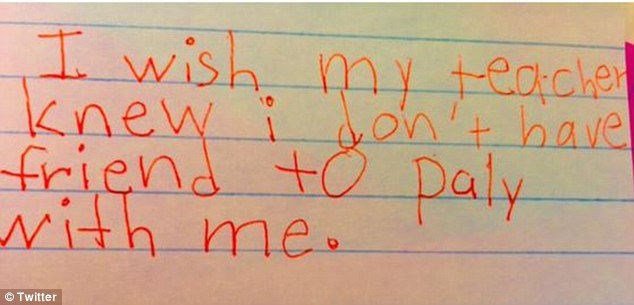 I wish my teacher
knew i don't have
friend to paly
with me.
© Twitter